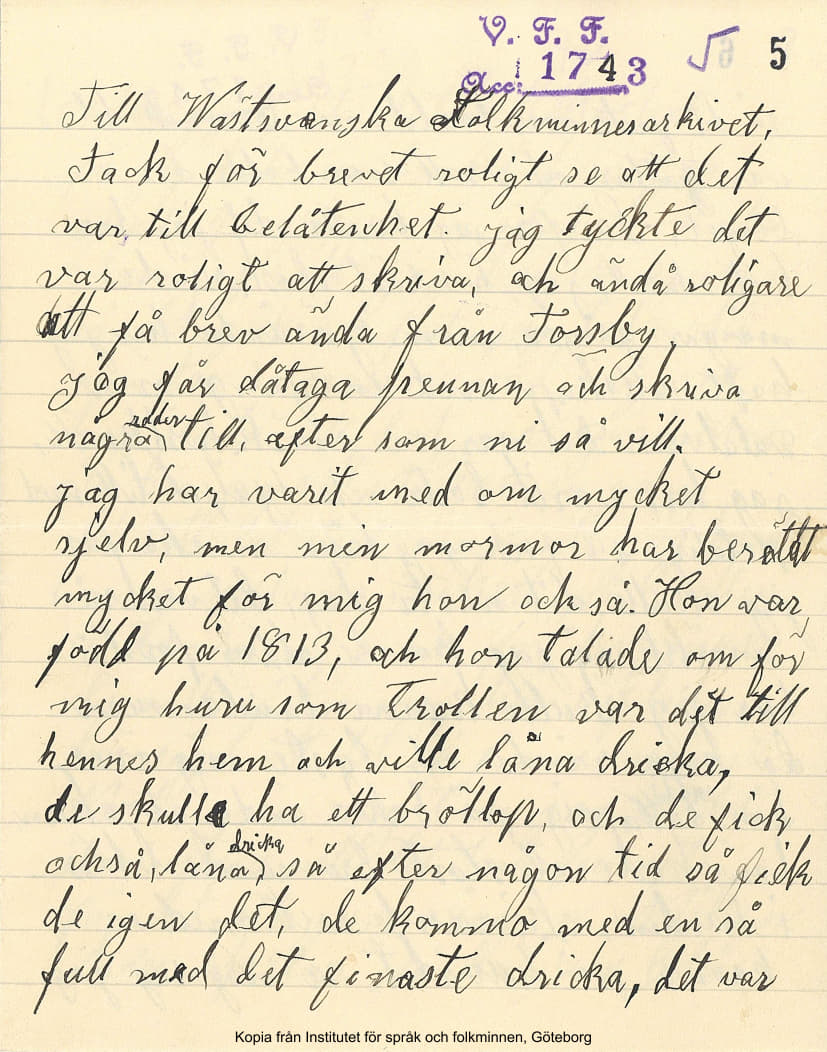 V. F. F. 5
Acc: 1743
Till Wästsvenska Folkminnesarkivet,
Tack för brevet roligt se att det
var till belåtenhet. jag tyckte det
var roligt att skriva, och ändå roligare
att få brev ända från Torsby,
jag får dåtaga pennan och skriva
några rader till, efter som ni så vill.
jag har varit med om mycket
sjelv, men min mormor har berättat
mycket för mig hon också. Hon var
född på 1813, och hon talade om för
mig huru som Trollen var det till
hennes hem och ville låna dricka,
de skulle ha ett bröllop, och de fick
också, låna dricka, så efter någon tid så fick
de igen det, de kommo med en så
full med det finaste dricka, det var
Kopia från Institutet för språk och folkminnen, Göteborg